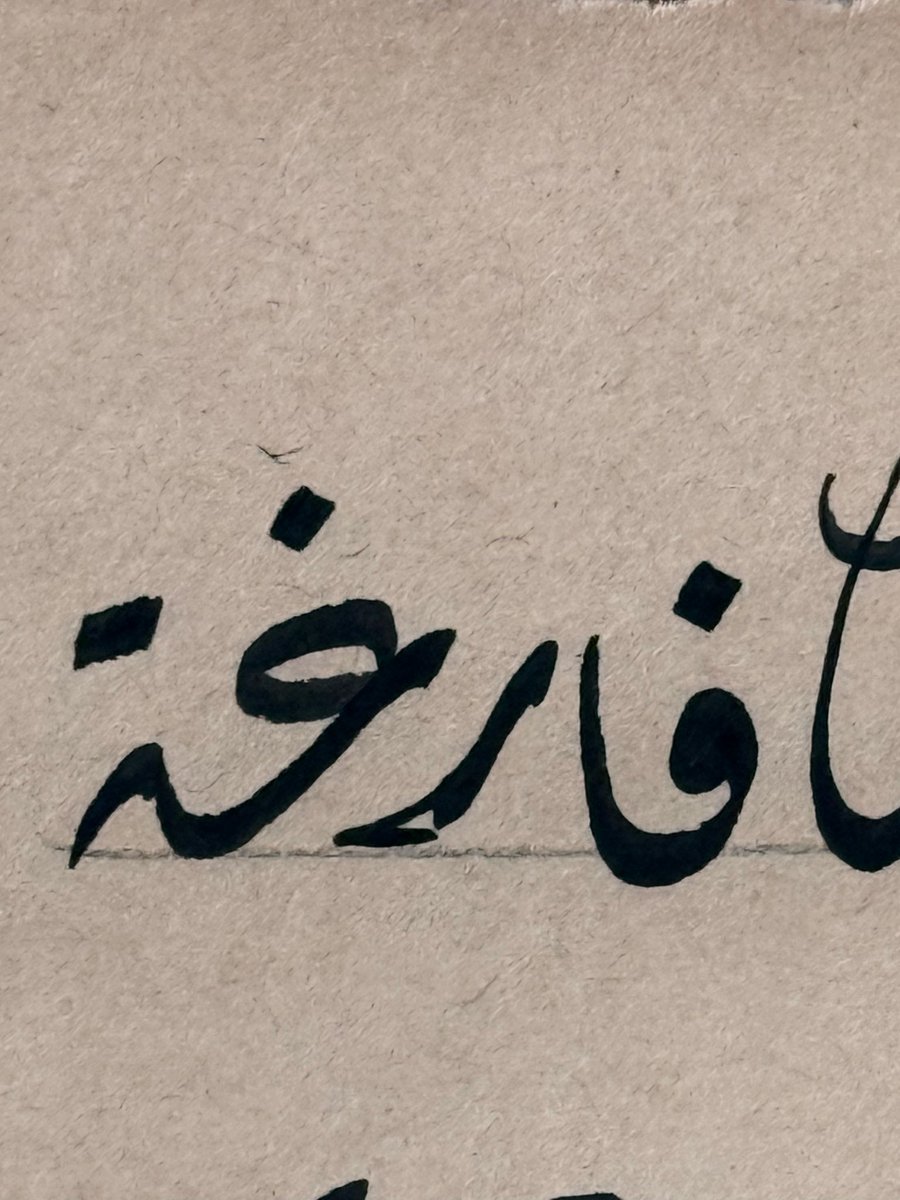 فارغة